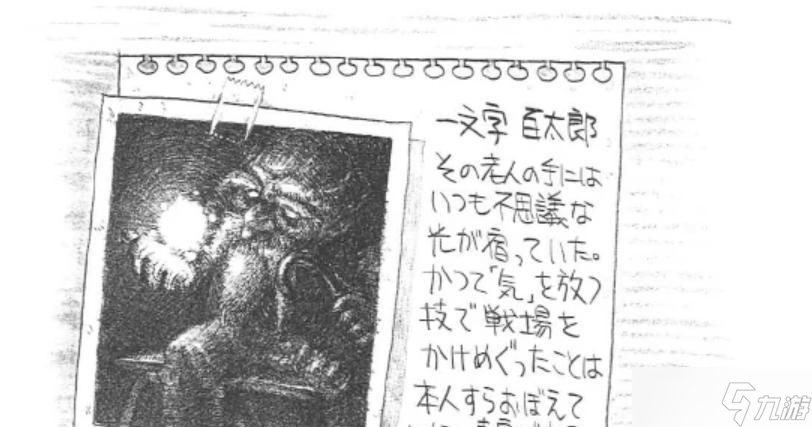 一文字 百太郎
その老人の手には
いつも不思議な
光が宿っていた。
かつて「気」を放つ
技で戦場を
かけめぐったことは
本人すらおぼえて
九游